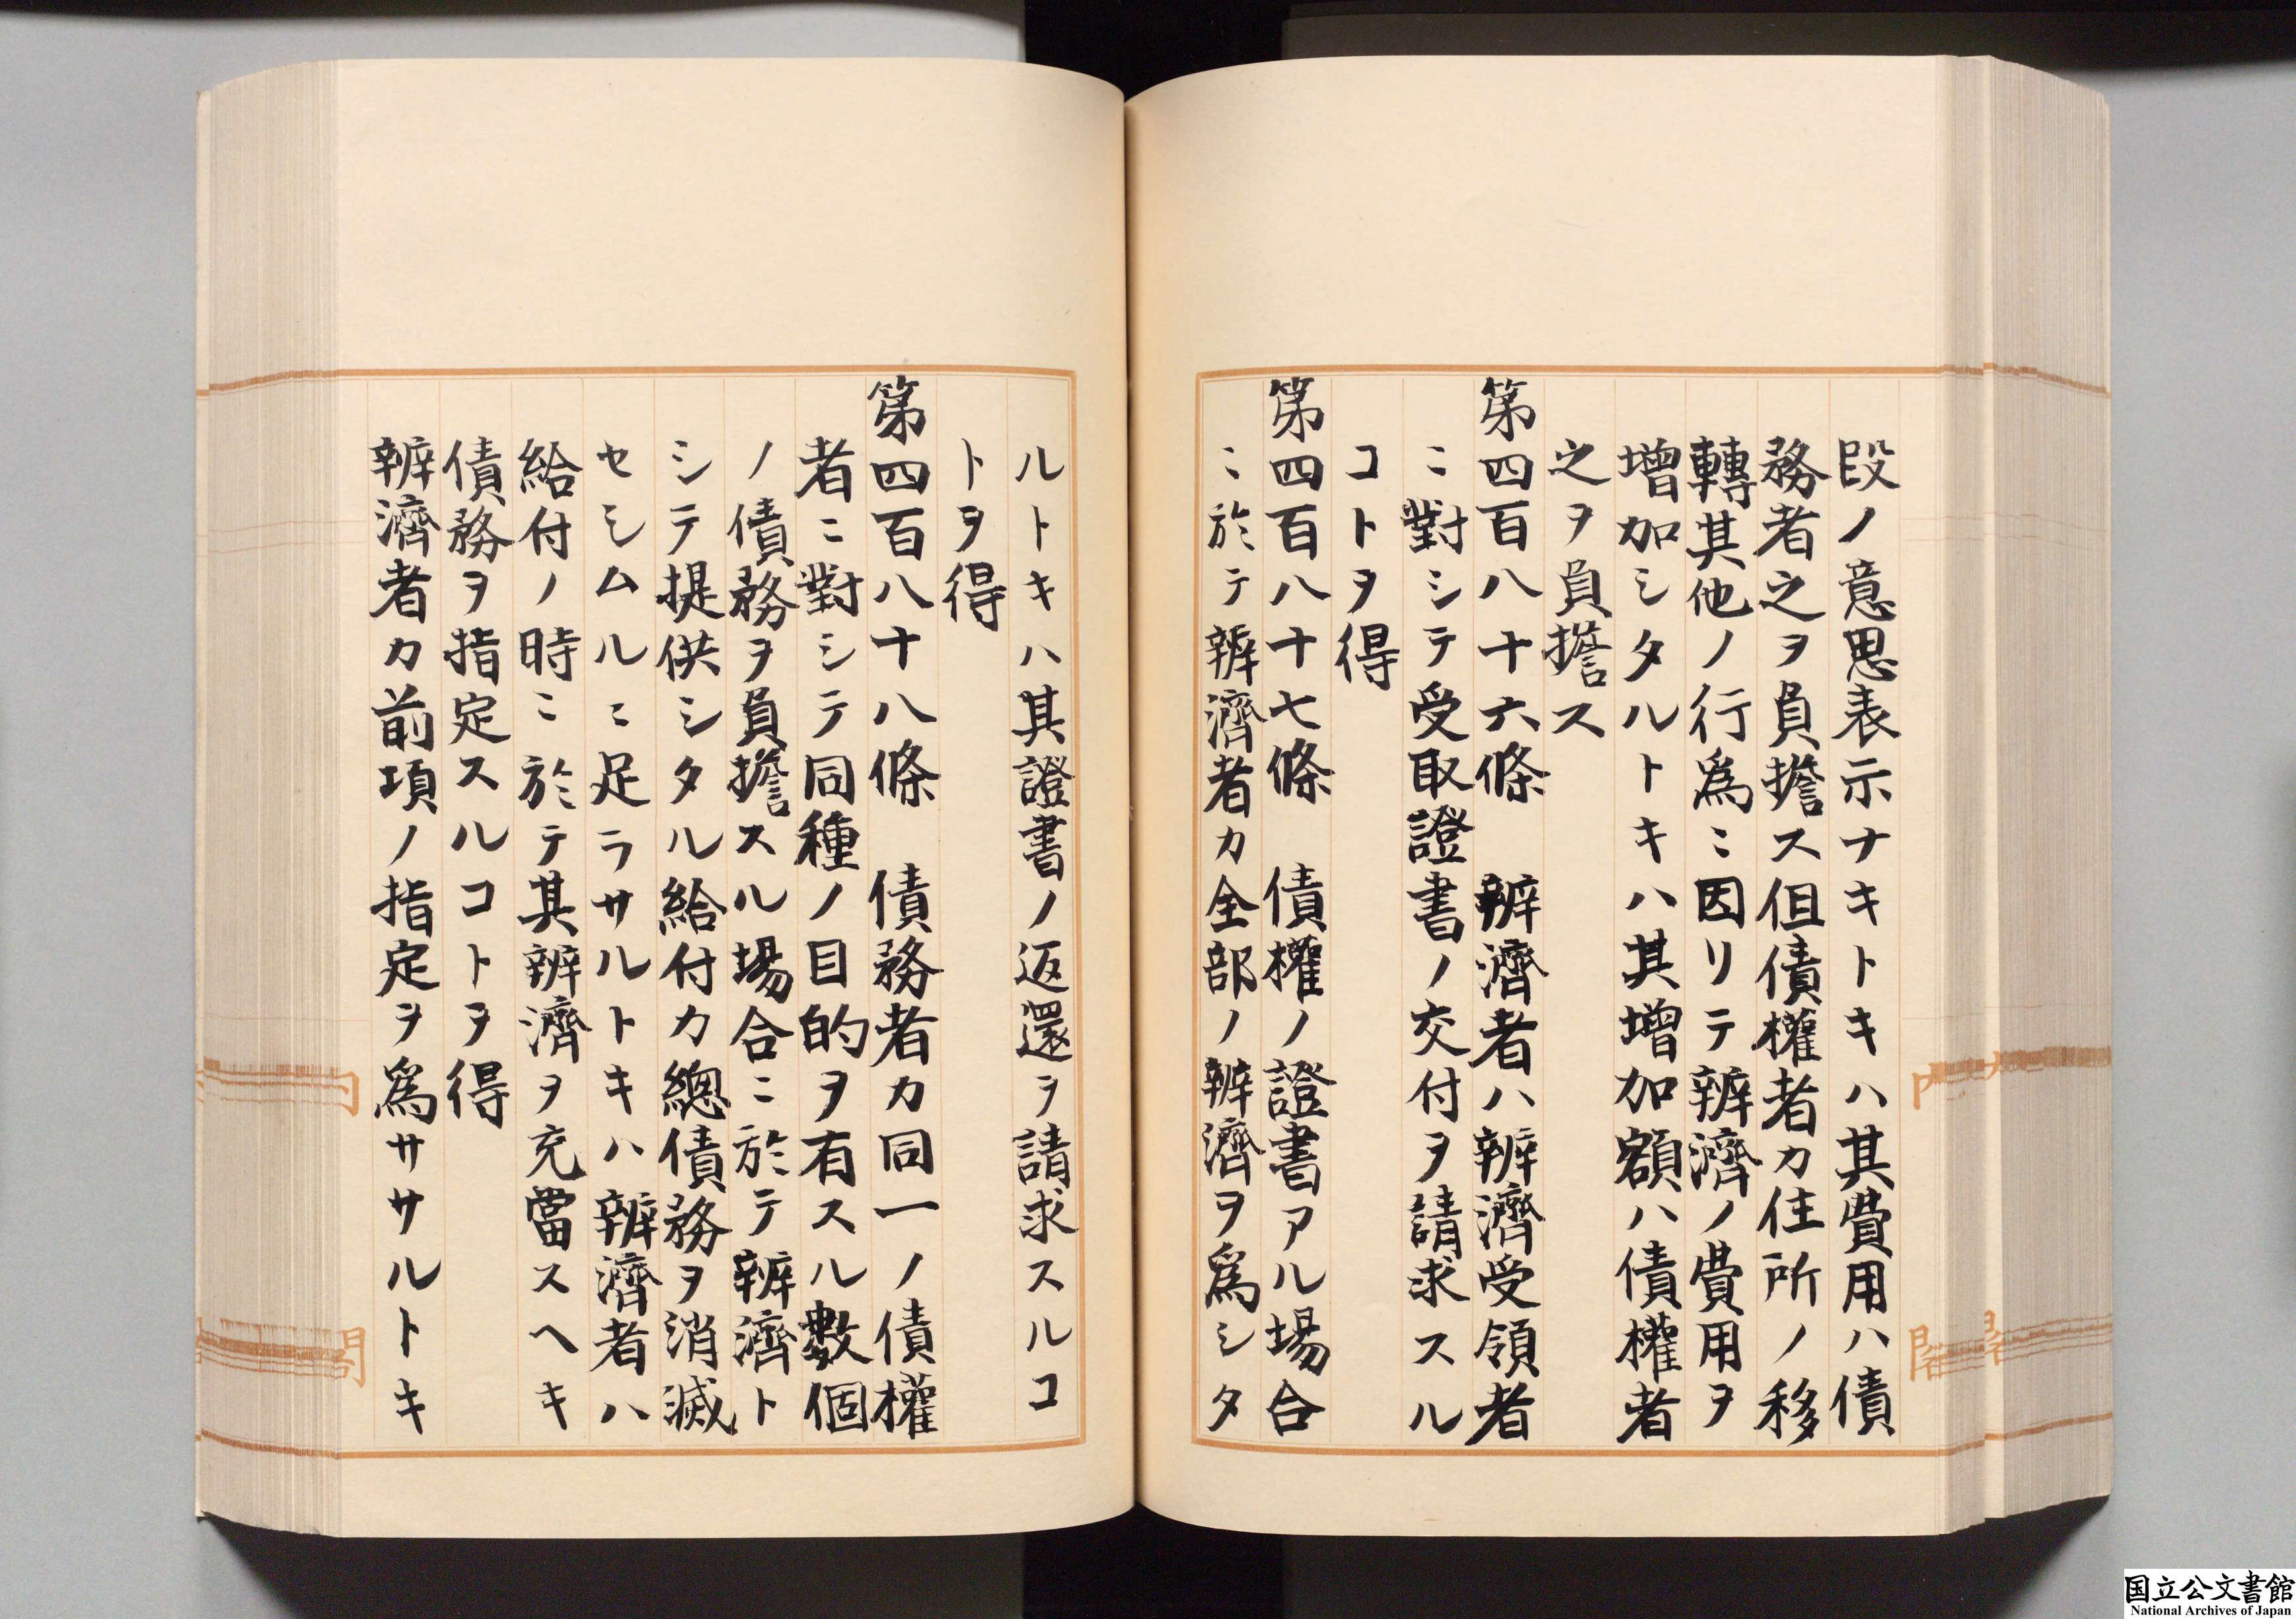 段ノ意思表示ナキトキハ其費用ハ債
務者之ヲ負擔ス但債權者カ住所ノ移
轉其他ノ行爲ニ因リテ辨濟ノ費用ヲ
增加シタルトキハ其增加額ハ債權者
之ヲ負擔ス
第四百八十六條　辨濟者ハ辨濟受領者
ニ對シテ受取證書ノ交付ヲ請求スル
コトヲ得
第四百八十七條　債權ノ證書アル場合
ニ於テ辨濟者カ全部ノ辨濟ヲ爲シタ
ルトキハ其證書ノ返還ヲ請求スルコ
トヲ得
第四百八十八條　債務者カ同一ノ債權
者ニ對シテ同種ノ目的ヲ有スル數個
ノ債務ヲ負擔スル場合ニ於テ辨濟ト
シテ提供シタル給付カ總債務ヲ消滅
セシムルニ足ラサルトキハ辨濟者ハ
給付ノ時ニ於テ其辨濟ヲ充當スヘキ
債務ヲ指定スルコトヲ得
辨濟者カ前項ノ指定ヲ爲サヽルトキ
国立公文書館
National Archives of Japan